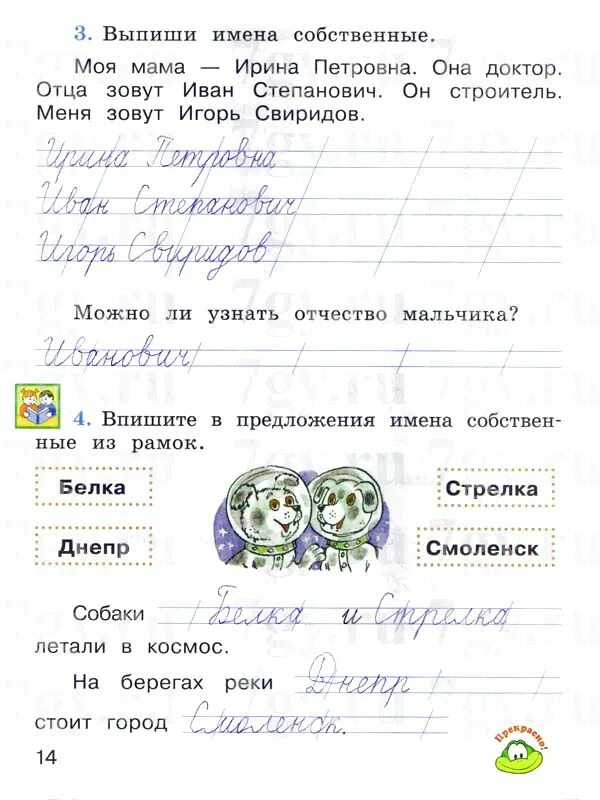 3. Выпиши имена собственные.
Моя мама — Ирина Петровна. Она доктор.
Отца зовут Иван Степанович. Он строитель.
Меня зовут Игорь Свиридов.
Ирина Петровна
Иван Степанович
Игорь Свиридов
Можно ли узнать отчество мальчика?
Иванович
4. Впишите в предложения имена собствен-
ные из рамок.
Белка
Стрелка
Днепр
Смоленск
Собаки Белка и Стрелка
летали в космос.
На берегах реки Днепр
стоит город Смоленск.
Прекрасно!
14